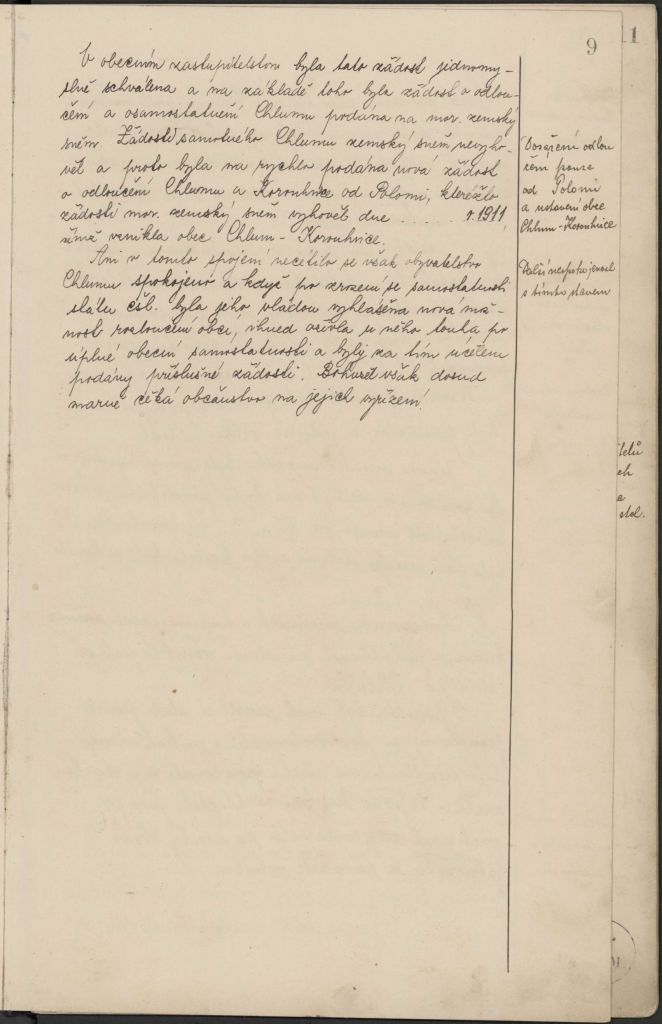 9
V obecním zastupitelstvu byla tato žádost jednomy-
slně schválena a na základě toho byla žádost o odlou-
čení a osamostatnění Chlumu podána na mor. zemský
sněm. Žádosti samotného Chlumu zemský sněm nevyho-
věl a proto byla na rychlo podána nová žádost
o odloučení Chlumu a Korouhvice od Polomi, kteréžto
žádosti mor. zemský sněm vyhověl dne . . . . . . r. 1911
čímž vznikla obec Chlum - Korouhvice.
Ani v tomto spojení necítilo se však obyvatelstvo
Chlumu spokojeno a když po zrození se samostatnosti
státu čsl. byla jeho vládou vyhlášena nová mož-
nost rozloučení obcí, ihned ožívla u něho touha po
úplné obecní samostatnosti a byly za tím účelem
podány příslušné žádosti. Bohužel však dosud
marně čeká občanstvo na jejich vyřízení.
Dosažení odlou
čení pouze
od Polomi
a ustavení obce
Chlum-Korouhvice
Další nespokojenost
s tímto stavem
1
telů
ch
a